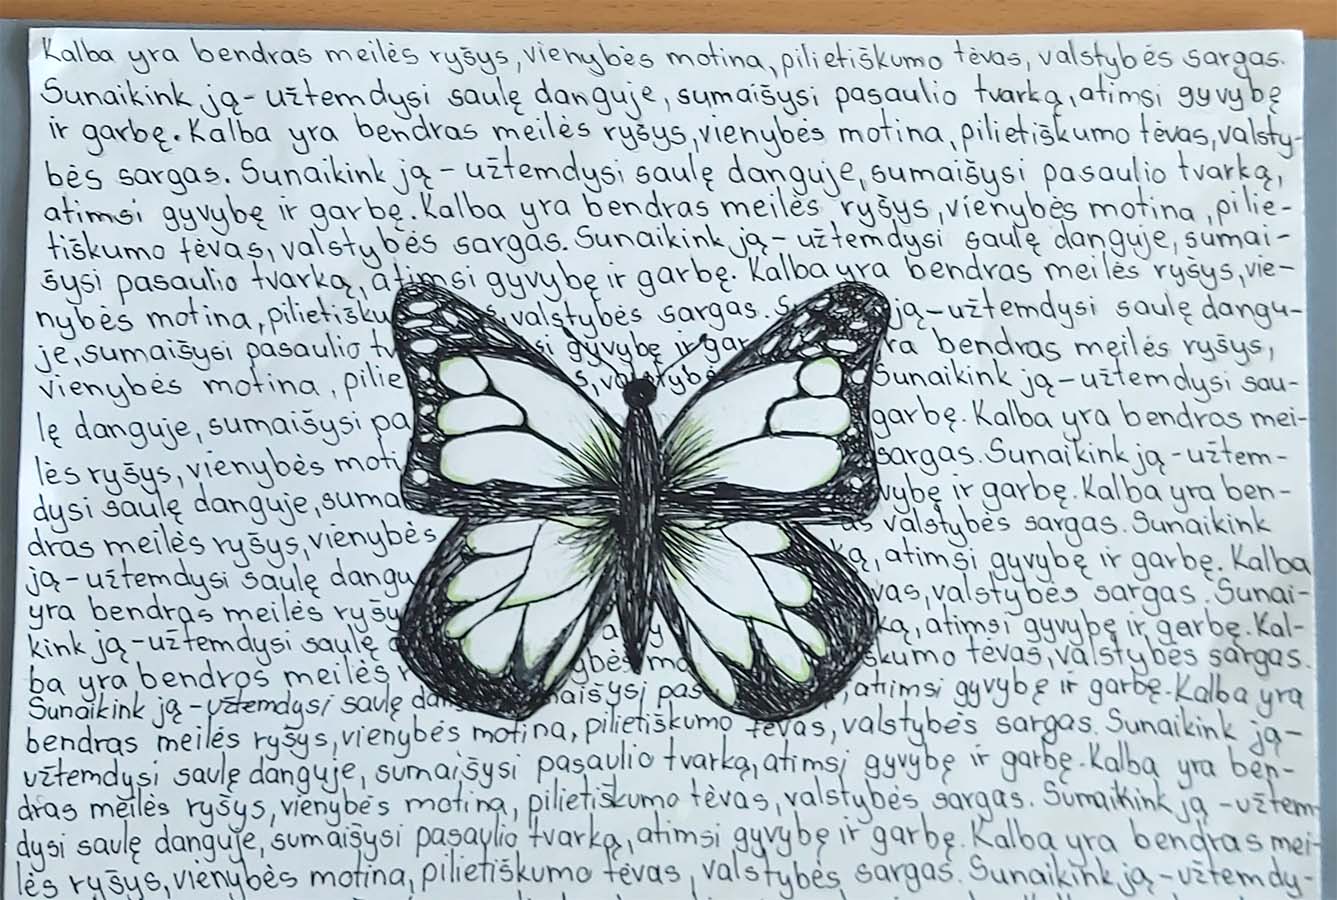 Kalba yra bendras meilės ryšys, vienybės motina, pilietiškumo tėvas, valstybės sargas.
Sunaikink ją - užtemdysi saulę danguje, sumaišysi pasaulio tvarką, atimsi gyvybę
ir garbę. Kalba yra bendras meilės ryšys, vienybės motina, pilietiškumo tėvas, valsty-
bės sargas. Sunaikink ją - užtemdysi saulę danguje, sumaišysi pasaulio tvarką,
atimsi gyvybę ir garbę. Kalba yra bendras meilės ryšys, vienybės motina, pilie-
tiškumo tėvas, valstybės sargas. Sunaikink ją - užtemdysi saulę danguje, sumai-
šysi pasaulio tvarką, atimsi gyvybę ir garbę. Kalba yra bendras meilės ryšys, vie-
nybės motina, pilietišku valstybės sargas. ją - užtemdysi saulę dangu-
je, sumaišysi pasaulio gyvybę ir gar bendras meilės ryšys,
vienybės motina, pilie Sunaikink ją - užtemdysi sau-
lę danguje, sumaišysi pa garbę. Kalba yra bendras mei-
lės ryšys, vienybės moti sargas. Sunaikink ją - užtem-
dysi saulę danguje, suma vybę ir garbę. Kalba yra ben-
dras meilės ryšys, vienybės valstybės sargas. Sunaikink
ją - užtemdysi saulę dangu ką, atimsi gyvybę ir garbę. Kalba
yra bendras meilės ryšy vas, valstybės sargas. Sunai-
kink ją - užtemdysi saulę ką, atimsi gyvybę ir garbę. Kal-
ba yra bendros meilės ybės mo škumo tėvas, valstybės sargas.
Sunaikink ją - užtemdysi saulę da aišysi pas , atimsi gyvybę ir garbę. Kalba yra
bendras meilės ryšys, vienybės motina, pilietiškumo tėvas, valstybės sargas. Sunaikink ją -
užtemdysi saulę danguje, sumaišysi pasaulio tvarką, atimsi gyvybę ir garbę. Kalba yra ben-
dras meilės ryšys, vienybės motina, pilietiškumo tėvas, valstybės sargas. Sunaikink ją - užtem
dysi saulę danguje, sumaišysi pasaulio tvarką, atimsi gyvybę ir garbę. Kalba yra bendras mei-
lės ryšys, vienybės motina, pilietiškumo tėvas, valstybės sargas. Sunaikink ją - užtemdy-